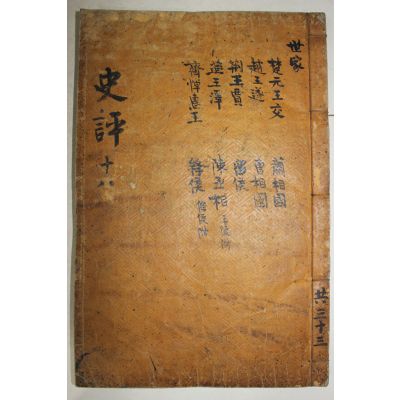 世家
楚元王交
趙王遂
荊王賈
燕王澤
齊悼惠王
蕭相國
曺相國
留侯
陳丞相 王陵附
絳侯 條侯附
史評 十八
共三十三